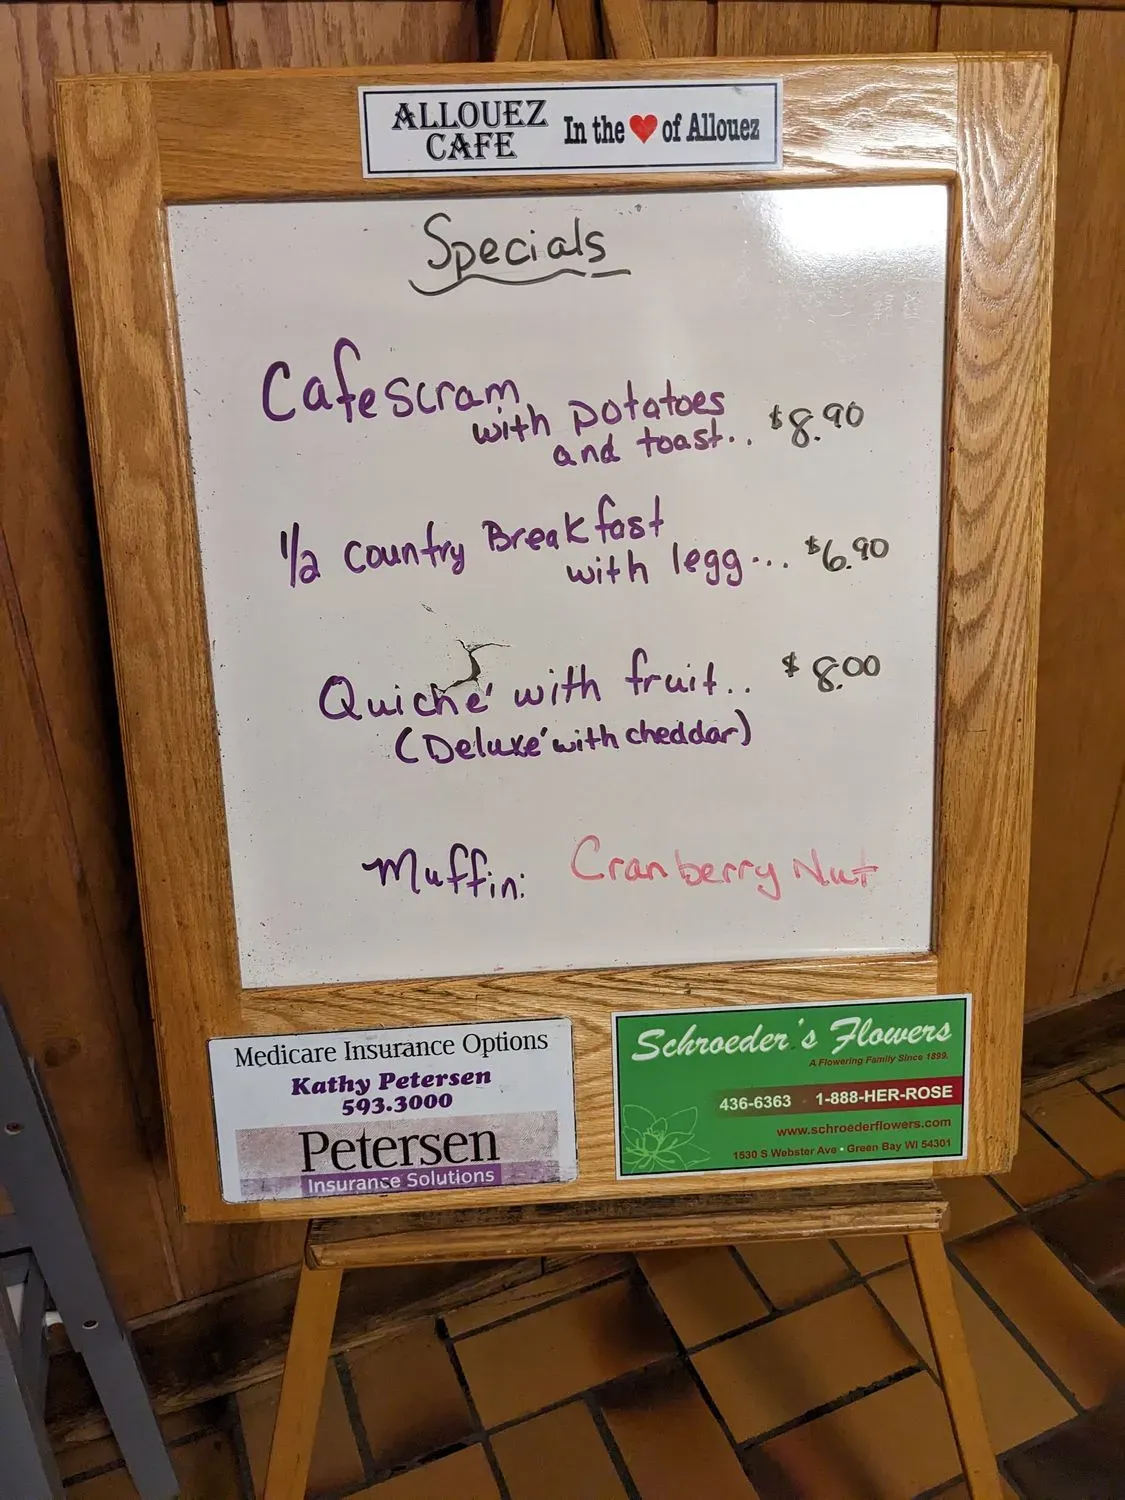 ALLOUEZ CAFE In the ❤ of Allouez
Specials
Cafe scram
with potatoes
and toast.. $8.90
1/2 Country Breakfast
with 1egg... $6.90
Quiché with fruit.. $8.00
(Deluxé with cheddar)
Muffin: Cranberry Nut
Medicare Insurance Options
Kathy Petersen
593.3000
Petersen
Insurance Solutions
Schroeder's Flowers
A Flowering Family Since 1899.
436-6363 1-888-HER-ROSE
www.schroederflowers.com
1530 S Webster Ave • Green Bay WI 54301